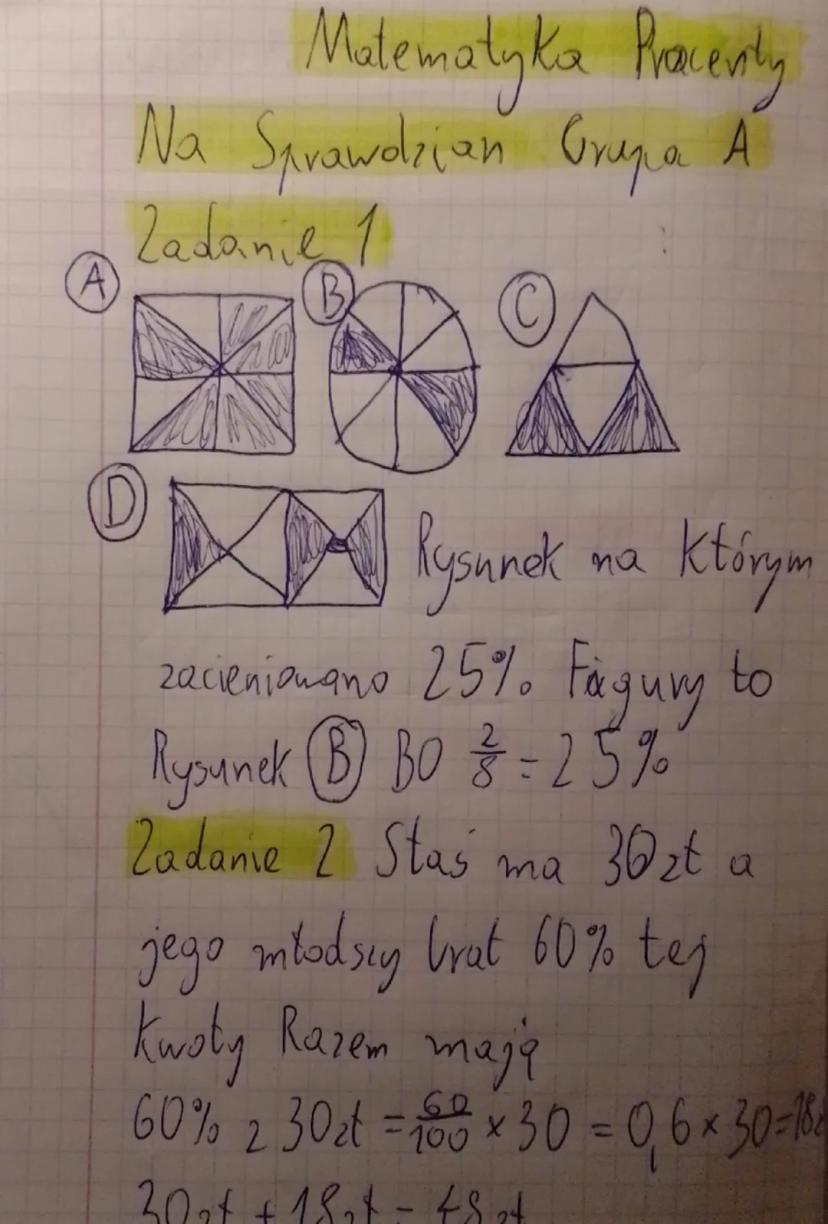 Matematyka Procenty
Na Sprawdzian Grupa A
Zadanie 1
A B C
D Rysunek na którym
zacieniowano 25% Figury to
Rysunek B BO 2/8 = 25%
Zadanie 2 Staś ma 30zł a
jego młodszy brat 60% tej
kwoty Razem mają
60% z 30zł = 60/100 × 30 = 0,6 × 30 = 18zł
30zł + 18zł = 48zł